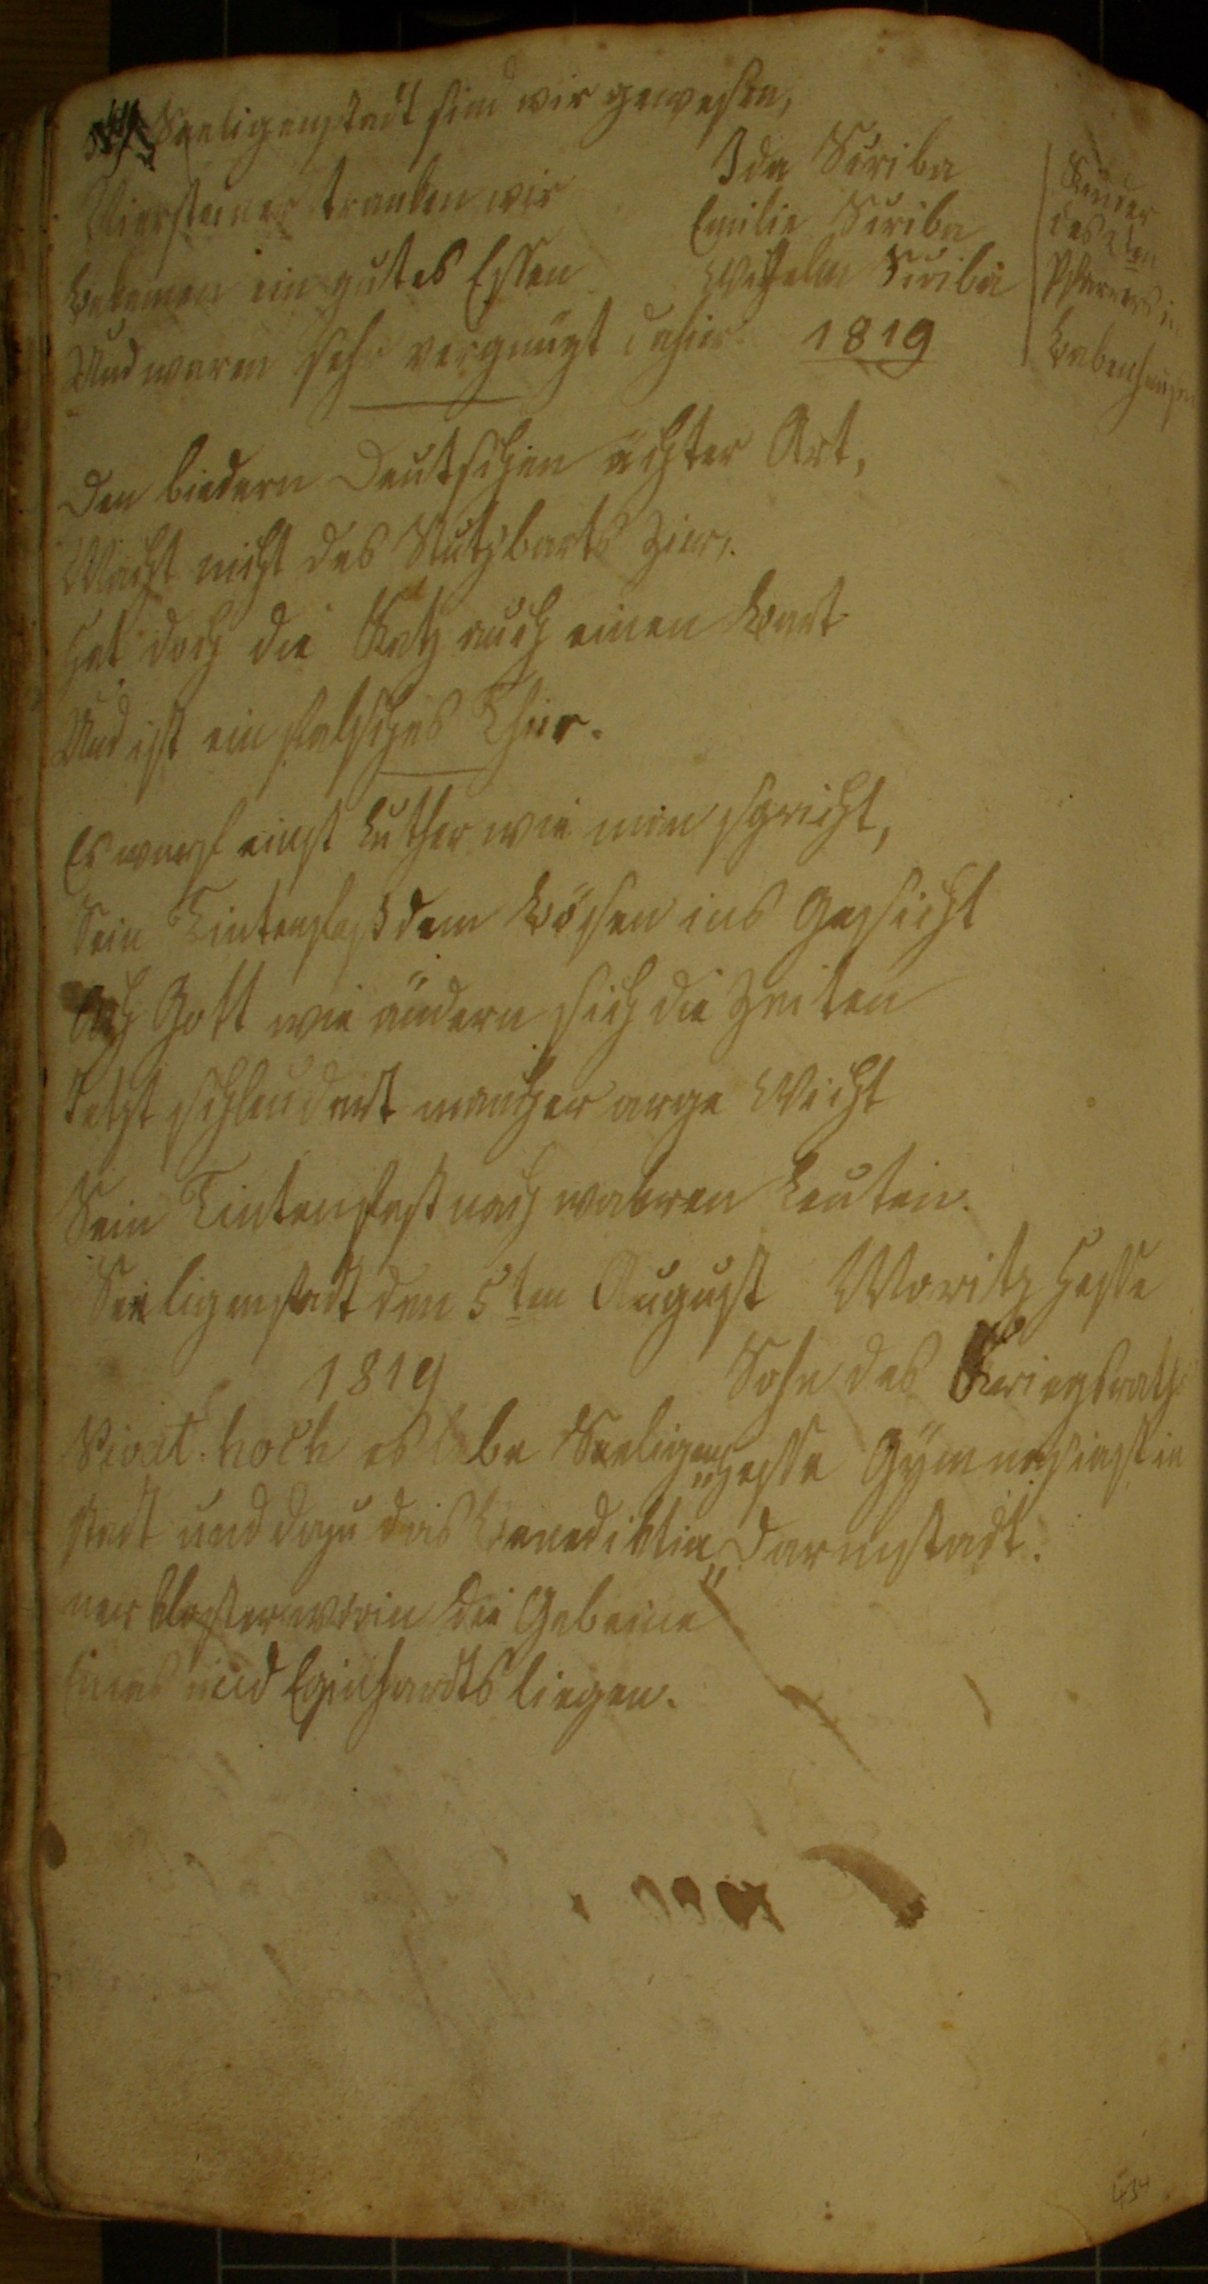 In Seeligenstadt sind wir gewesen,
Niersteiner tranken wir
Bekamen ein gutes Essen
Und waren sehr vergnügt dahier.
Ida Scriba
Emilie Scriba
Wilhelm Scriba
1819
Kinder
des 2ten
Pfarrers in
Babenhausen
Den biedern Deutschen ächter Art,
Macht nicht des Stutzbarts Zier,
Hat doch die Katz auch einen Bart
Und ist ein falsches Thier.
Es warf einst Luther wie man spricht,
Sein Tintenfaß dem Bösen ins Gesicht
Ach Gott wie ändern sich die Zeiten
Jetzt schleudert mancher arge Wicht
Sein Tintenfaß nach wakren Leuten.
Seeligenstadt den 5ten August
1819
Moritz Hesse
Sohn des Kriegsraths
Hesse Gymnasiast in
Darmstadt.
Vivat. hoch es lebe Seeligen„
stadt und dazu das Benediktin„
ner Kloster worin die Gebeine
Emas und Eginhardts liegen.
434